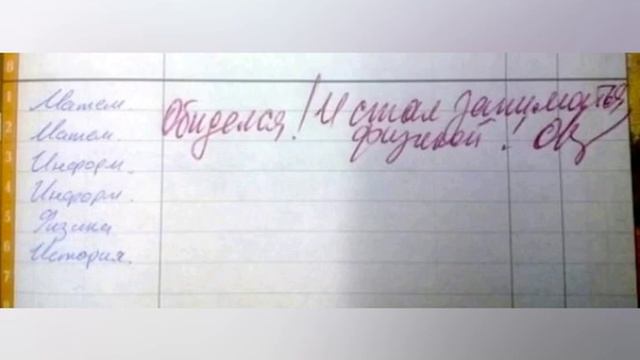 8
1 Матем.
2 Матем.
3 Информ.
4 Информ.
5 Физика
6 История.
7
Обиделся! И стал заниматься
физикой!